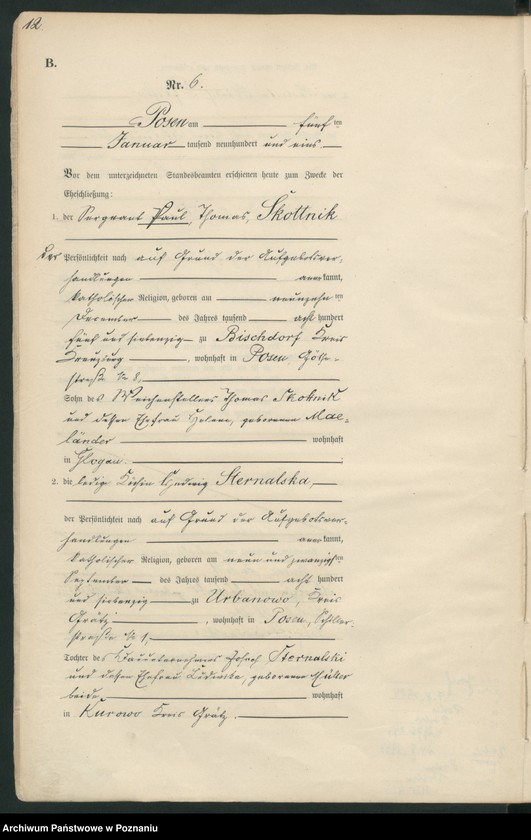 12.
B.
Nr. 6.
Posen am fünf ten
Januar tausend neunhundert und eins.
Vor dem unterzeichneten Standesbeamten erschienen heute zum Zwecke der
Eheschließung:
1. der Sergeant Paul, Thomas, Skottnik
der Persönlichkeit nach auf Grund der Aufgebotsver-
handlungen anerkannt,
katholischer Religion, geboren am neunzehn ten
Dezember des Jahres tausend acht hundert
fünf und siebenzig zu Bischdorf Kreis
Kreuzburg, wohnhaft in Posen, Göthe-
straße № 8,
Sohn des Weichenstellers Thomas Skottnik
und dessen Ehefrau Helene, geborenen
länder wohnhaft
in Glogau.
2. die ledige Köchin Hedwig Sternalska,
der Persönlichkeit nach auf Grund der Aufgebotsver-
handlungen anerkannt,
katholischer Religion, geboren am neun und zwanzigsten
September des Jahres tausend acht hundert
und siebenzig zu Urbanowo, Kreis
Grätz, wohnhaft in Posen, Schiller-
straße № 1,
Tochter des Josef Sternalski
und dessen Ehefrau Ludwika, geborenen
beide wohnhaft
in Kurowo Kreis Grätz.
Archiwum Państwowe w Poznaniu